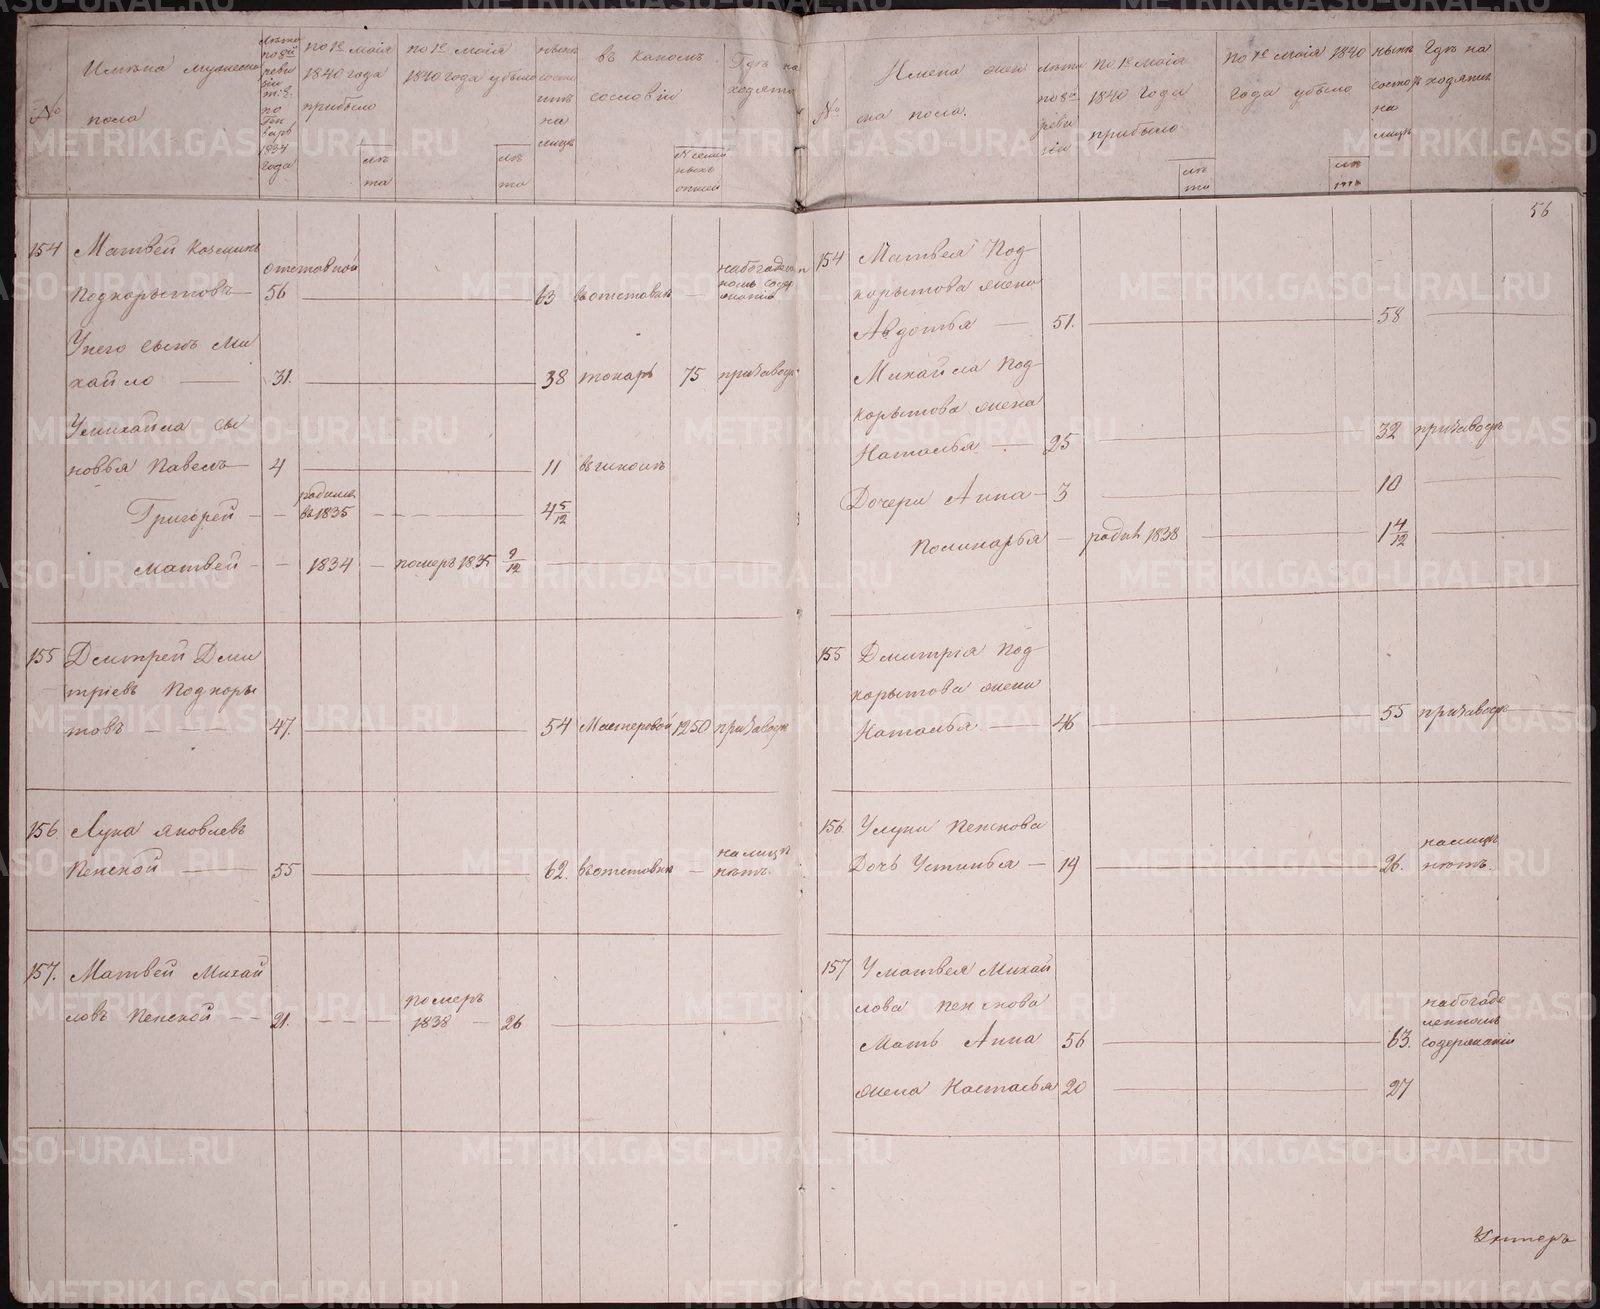 №
Имѣна мужеска
пола
лѣта
по 8й
реви
зіи
т: е:
по
Ген
варь
1834
года
по 1е маія
1840 года
прибыло
лѣ
та
по 1е маія
1840 года убыло
лѣ
та
нынѣ
состо
итъ
на
лицѣ
въ какомъ
сословіи
№ семей
ныхъ
списк
Гдѣ на
ходятся
154
Матвей Козминъ
Подкорытовъ
отставной
56
63
въ отставкѣ
на богадѣлен
номъ содер
жаніи
У него сынъ Ми
хайло
31.
38
токарь
75
при заводѣ
У михайла сы
новья Павелъ
4
11
въ школѣ
Григорей
родился
въ 1835
4 5/12
Матвей
1834
померъ 1835
9/12
155
Дмитрей Дми
тріевъ Подкоры
товъ
47.
54
Мастеровой
1250
при заводѣ
156.
Лука Яковлевъ
Пенской
55
62.
въ отставкѣ
на лицѣ
нѣтъ.
157.
Матвей Михай
ловъ Пенской
21.
померъ
1838
26
№
Имена жен
ска пола.
лѣта
по 8й
реви
зіи
по 1е маія
1840 года
прибыло
лѣ
та
по 1е маія 1840
года убыло
лѣ
та
нынѣ
состоитъ
на
лицѣ
Гдѣ на
ходятся
56
154
Матвея Под-
корытова жена
Авдотья
51.
58
Михайла Под-
корытова жена
Наталья
25
32
при заводѣ
Дочери Анна
3
10
Полинарья
родил 1838
1 4/12
155
Дмитрія Под-
корытова жена
Наталья
46
55
при заводѣ
156.
У луки Пенскова
Дочь Устинья
19
26.
на лицѣ
нѣтъ.
157
У матвея Михай
лова Пенскова
Мать Анна
56
63.
на богаде
ленномъ
содержаніи
жена Настасья
20
27
Унтеръ
METRIKI.GASO-URAL.RU